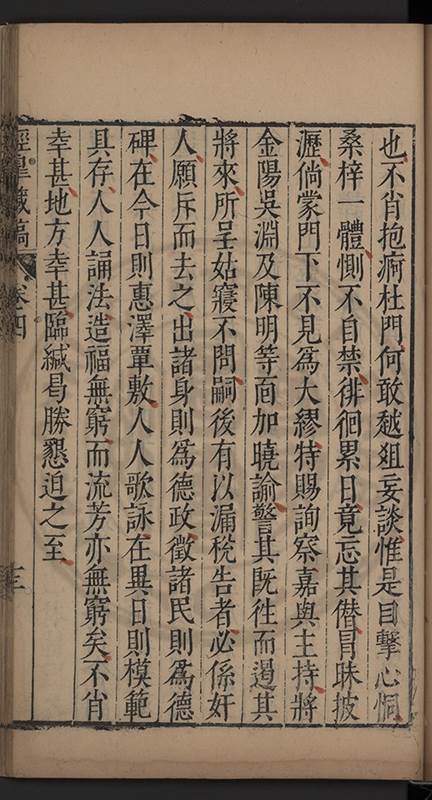 也不肖抱痾杜門何敢越俎妄談惟是目擊心恫
桑梓一體惻不自禁徘徊累日竟忘其僭冒昧披
瀝倘蒙門下不見為大繆特賜詢察嘉與主持將
金陽吳淵及陳明等面加曉諭警其既往而遏其
將來所呈姑寢不問嗣後有以漏稅告者必係奸
人願斥而去之出諸身則為德政徵諸民則為德
碑在今日則惠澤覃敷人人歌詠在異日則模範
具存人人誦法造福無窮而流芳亦無窮矣不肖
幸甚地方幸甚臨緘曷勝懇迫之至
經皇藏稿
卷四